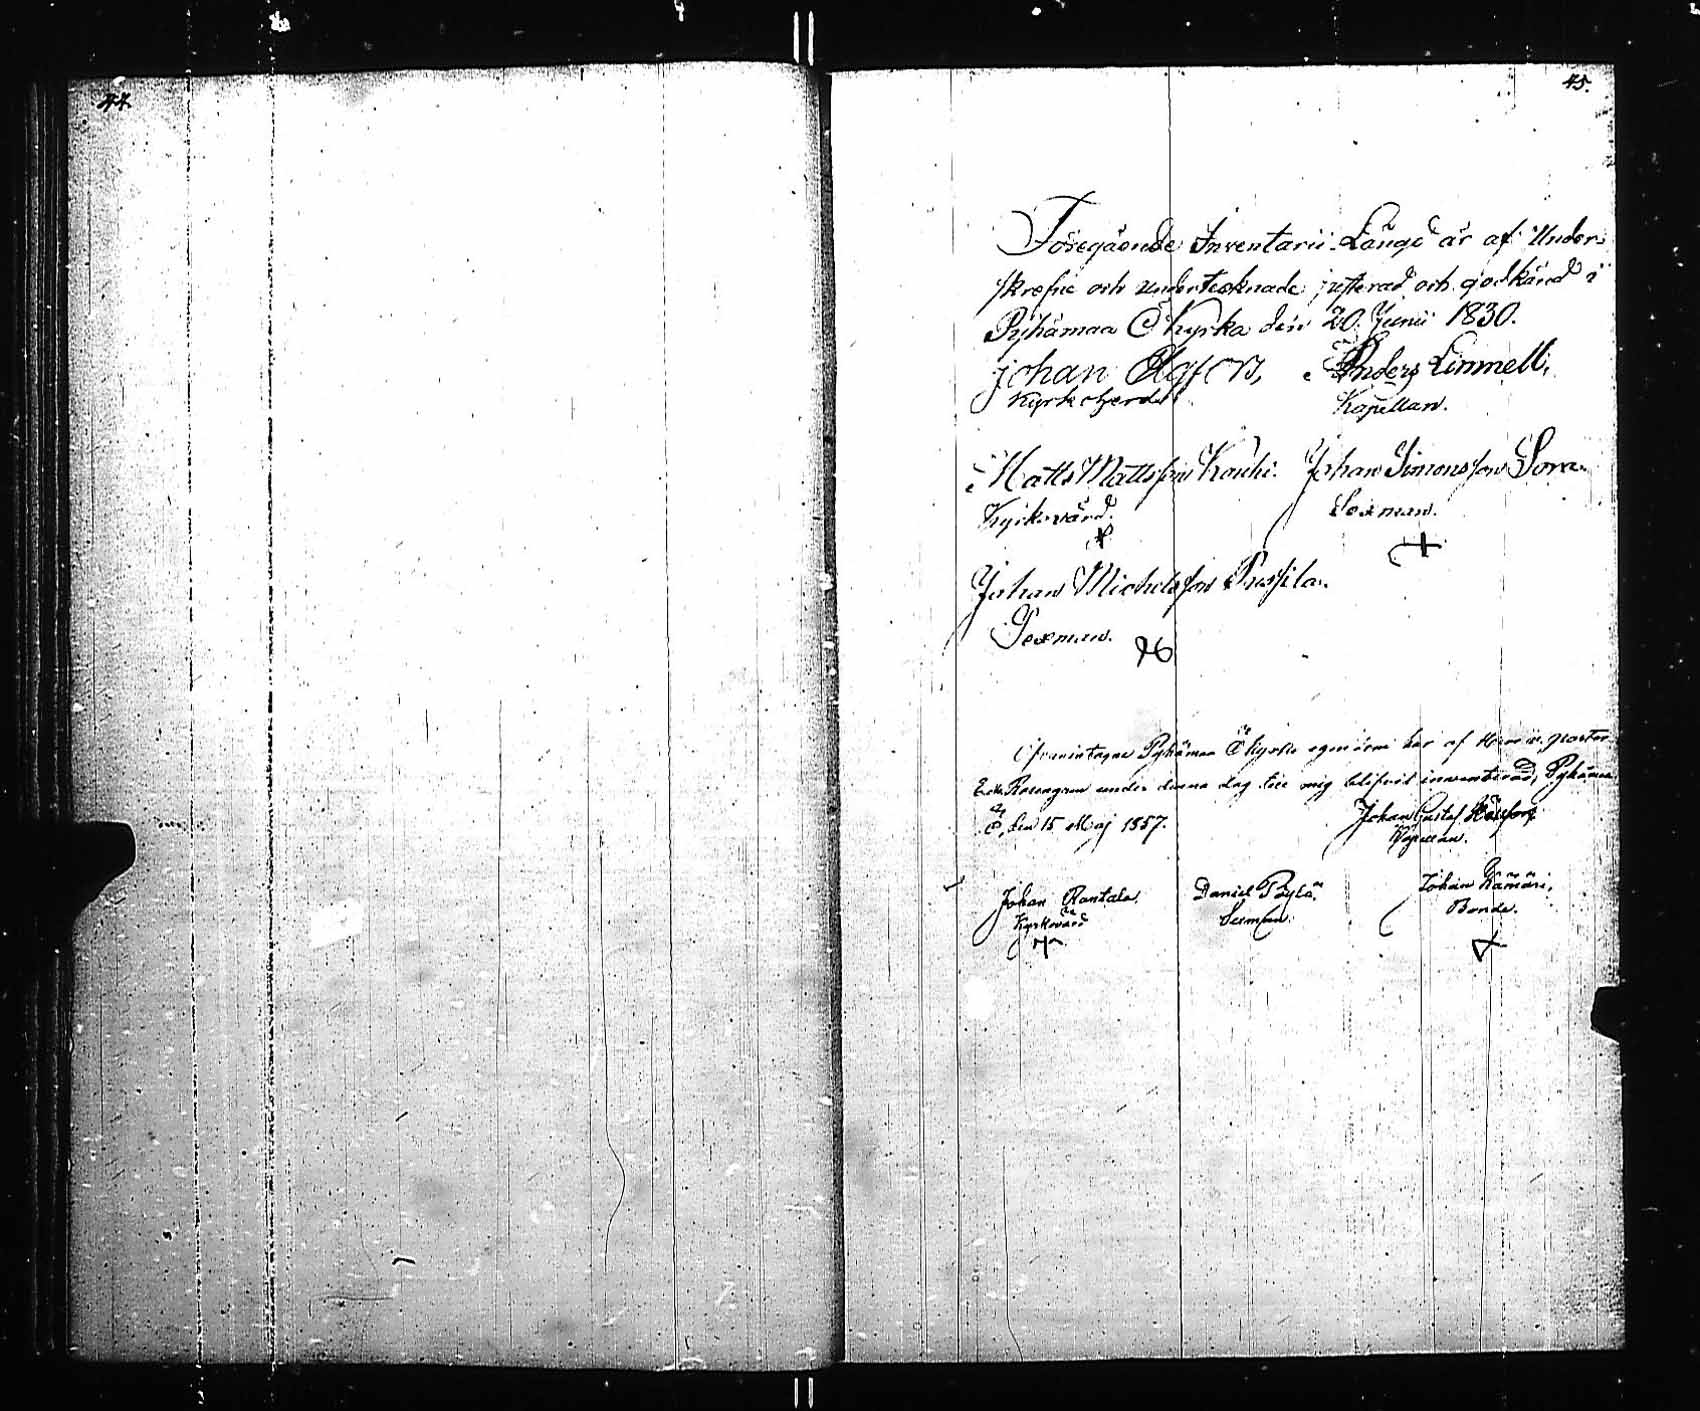 44.
45.
Föregående Inventarii Längd är af Under-
skrefne och undertecknade justerad och godkänd i
Pyhämaa Ö Kyrka den 20 Junii 1830.
Johan Agfors, Anders Linmell,
Kyrkoherde Kapellan.
Matts Mattsson Kauhi. Johan Simonsson Sora.
Kyrkovärd. Sexman.
Johan Michelsson Prusila.
Sexman.
Pyhämaa Ö kyrkas egendom har af Herr
Rosengren under denna dag till mig blifvit inventerad, Pyhämaa
Ö, den 15 Maj 1857. Johan Gustaf
Kapellan.
Johan Rantala. Daniel Pöylä. Johan Kämäri,
Kyrkovärd Sexman. Bonde.